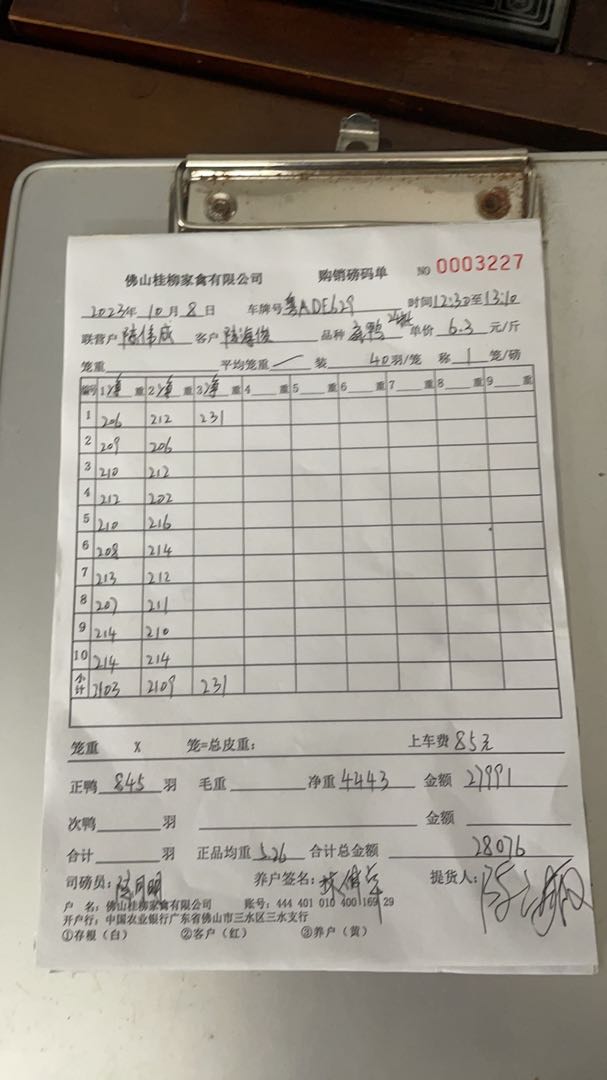 佛山桂柳家禽有限公司 购销磅码单 NO 0003227
2023年10月8日 车牌号粤ADE629 时间12:30至13:10
联营户 陆伟成 客户 陆海俊 品种 鸭 单价 6.3 元/斤
笼重 平均笼重 装 40羽/笼 称 1 笼/磅
编号 1净重 2净重 3净重 4 重 5 重 6 重 7 重 8 重 9 重
1 206 212 231
2 209 206
3 210 212
4 212 202
5 210 216
6 208 214
7 213 212
8 207 211
9 214 210
10 214 214
小计 2103 2109 231
笼重 X 笼=总皮重: 上车费 85元
正鸭 845 羽 毛重 净重 4443 金额 27991
次鸭 羽 金额
合计 羽 正品均重 5.26 合计总金额 28076
司磅员: 陆月明 养户签名: 提货人:
户 名: 佛山桂柳家禽有限公司 账号: 444 401 010 400 169 29
开户行: 中国农业银行广东省佛山市三水区三水支行
①存根(白) ②客户(红) ③养户(黄)